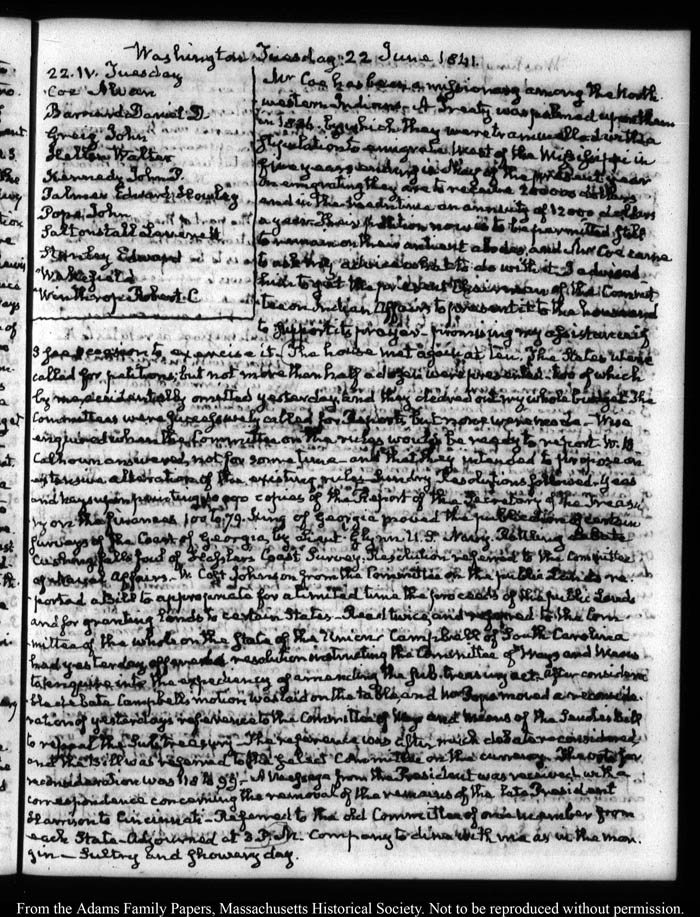 Washington Tuesday 22 June 1841.
22. IV. Tuesday
Coe Alvan
Barnard Daniel D.
Greig John
Kennedy John P.
Palmer Edward
Pope John
Saltonstall Leverett
Stanley Edward
Wakefield
Winthrop Robert C
Mr Coe has been a missionary among the North
western Indians. A Treaty was palmed upon them
in 1836. by which they were trammelled with a
stipulation to emigrate West of the Mississippi in
five years ending in May of the present year
On emigrating they are to receive 200000 dollars
and in the mean time an annuity of 12000 dollars
a year. Their petition now is to be permitted still
to remain on their ancient abodes, and Mr Coe came
to ask my advice what to do with it. I advised
him to get the present Chairman of the Commit
tee on Indian Affairs to present it to the house and
to support its prayer — promising my assistance if
I see occasion to exercise it. The house met again at ten. The States were
called for petitions, but not more than half a dozen were presented. two of which
by me accidentally omitted yesterday, and they cleared out my whole budget. The
Committees were successively called for Reports but none were made. Wise
enquired when the Committee on the rules would be ready to report. W. B
Calhoun answered, not for some time — and that they intended to propose an
extensive alteration of the existing rules. Sundry Resolutions followed. Yeas
and nays upon printing copies of the Report of the Secretary of the Treasu
ry on the finances 100 to 79. King of Georgia moved the publication of certain
Surveys of the Coast of Georgia by Lieut. Glynn U.S. Navy. Rattling debate
Cushing falls foul of Hasslers Coast Survey. Resolution referred to the Committee
of Naval Affairs. W. Cost Johnson from the Committee on the public Lands re
ported a Bill to appropriate for a limited time the proceeds of the public Lands
and for granting Lands to certain States. Read twice and referred to the Com
mittee of the whole on the State of the Union. Campbell of South Carolina
had yesterday offered a resolution instructing the Committee of Ways and Means
to enquire into the expediency of amending the Sub-treasury act. After considera
ble debate Campbell's motion was laid on the table, and Pope moved a reconside
ration of yesterdays reference to the Committee of Ways and Means of the Senates Bill
to repeal the Sub treasury — The reference was after much debate reconsidered,
and the Bill was referred to the Select Committee on the currency. The vote for
reconsideration was 118 to 95. — A Message from the President was received with a
correspondence concerning the removal of the remains of the late President
Harrison to Cincinnati. Referred to the old Committee of one member from
each State. Adjourned at 3. P.M. Company to dine with me as in the mar-
gin — Sultry and showery day.
From the Adams Family Papers, Massachusetts Historical Society. Not to be reproduced without permission.